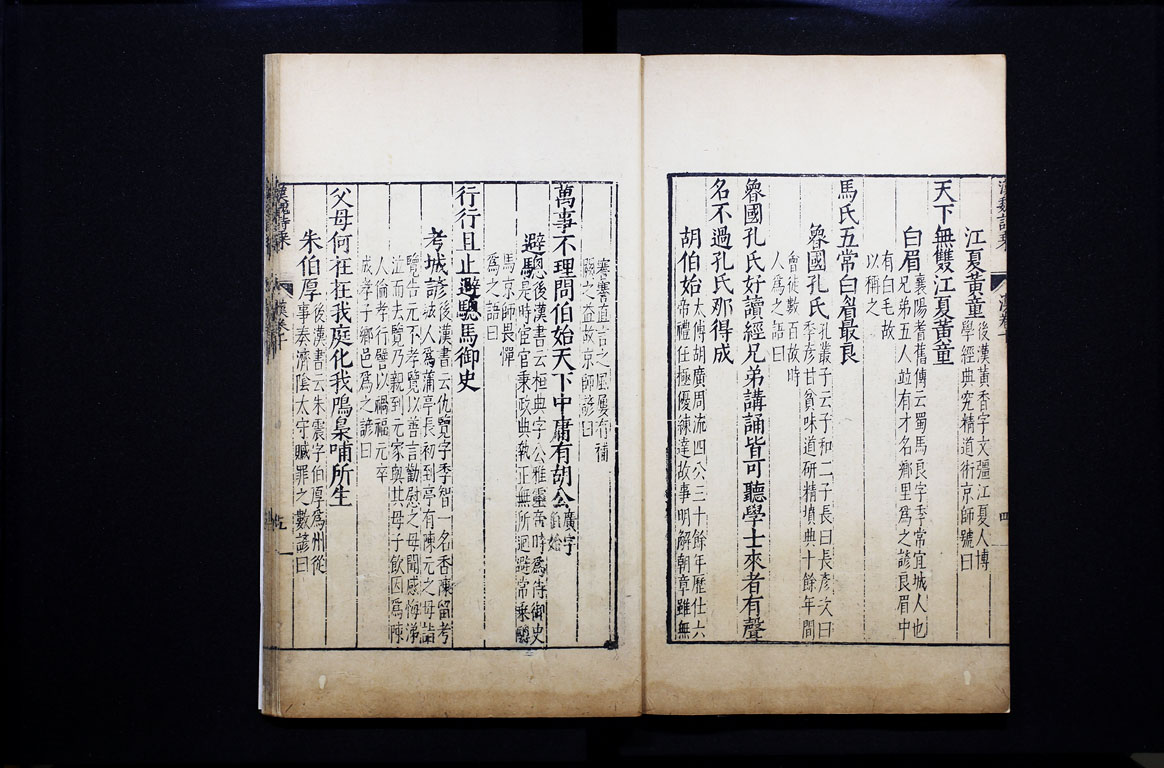 江夏黃童
後漢黃香字文彊江夏人博
學經典究精道術京師號曰
天下無雙江夏黃童
白眉
襄陽耆舊傳云蜀馬良字季常宜城人也
兄弟五人並有才名鄉里爲之諺良眉中
有白毛故
以稱之
馬氏五常白眉最良
魯國孔氏
孔叢子云子和二子長曰長彥次曰
季彥甘貧味道研精墳典十餘年間
會徒數百故時
人爲之語曰
魯國孔氏好讀經兄弟講誦皆可聽學士來者有聲
名不過孔氏那得成
胡伯始
太傅胡廣周流四公三十餘年歷仕六
帝禮任極優練達故事明解朝章雖無
四
謇謇直言之風屢有補
闕之益故京師諺曰
萬事不理問伯始天下中庸有胡公
廣字
伯始
避驄
後漢書云桓典字公雅靈帝時爲侍御史
是時宦官秉政典執正無所迴避常乘驄
馬京師畏憚
爲之語曰
行行且止避驄馬御史
考城諺
後漢書云仇覽字季智一名香陳留考
城人爲蒲亭長初到亭有陳元之母詣
覽告元不孝覽以善言勸慰之母聞感悔涕
泣而去覽乃親到元家與其母子飲因爲陳
人倫孝行譬以禍福元卒
成孝子鄉邑爲之諺曰
父母何在在我庭化我鳲梟哺所生
朱伯厚
後漢書云朱震字伯厚爲州從
事奏濟陰太守贓罪之數諺曰
漢魏詩乘
漢卷十